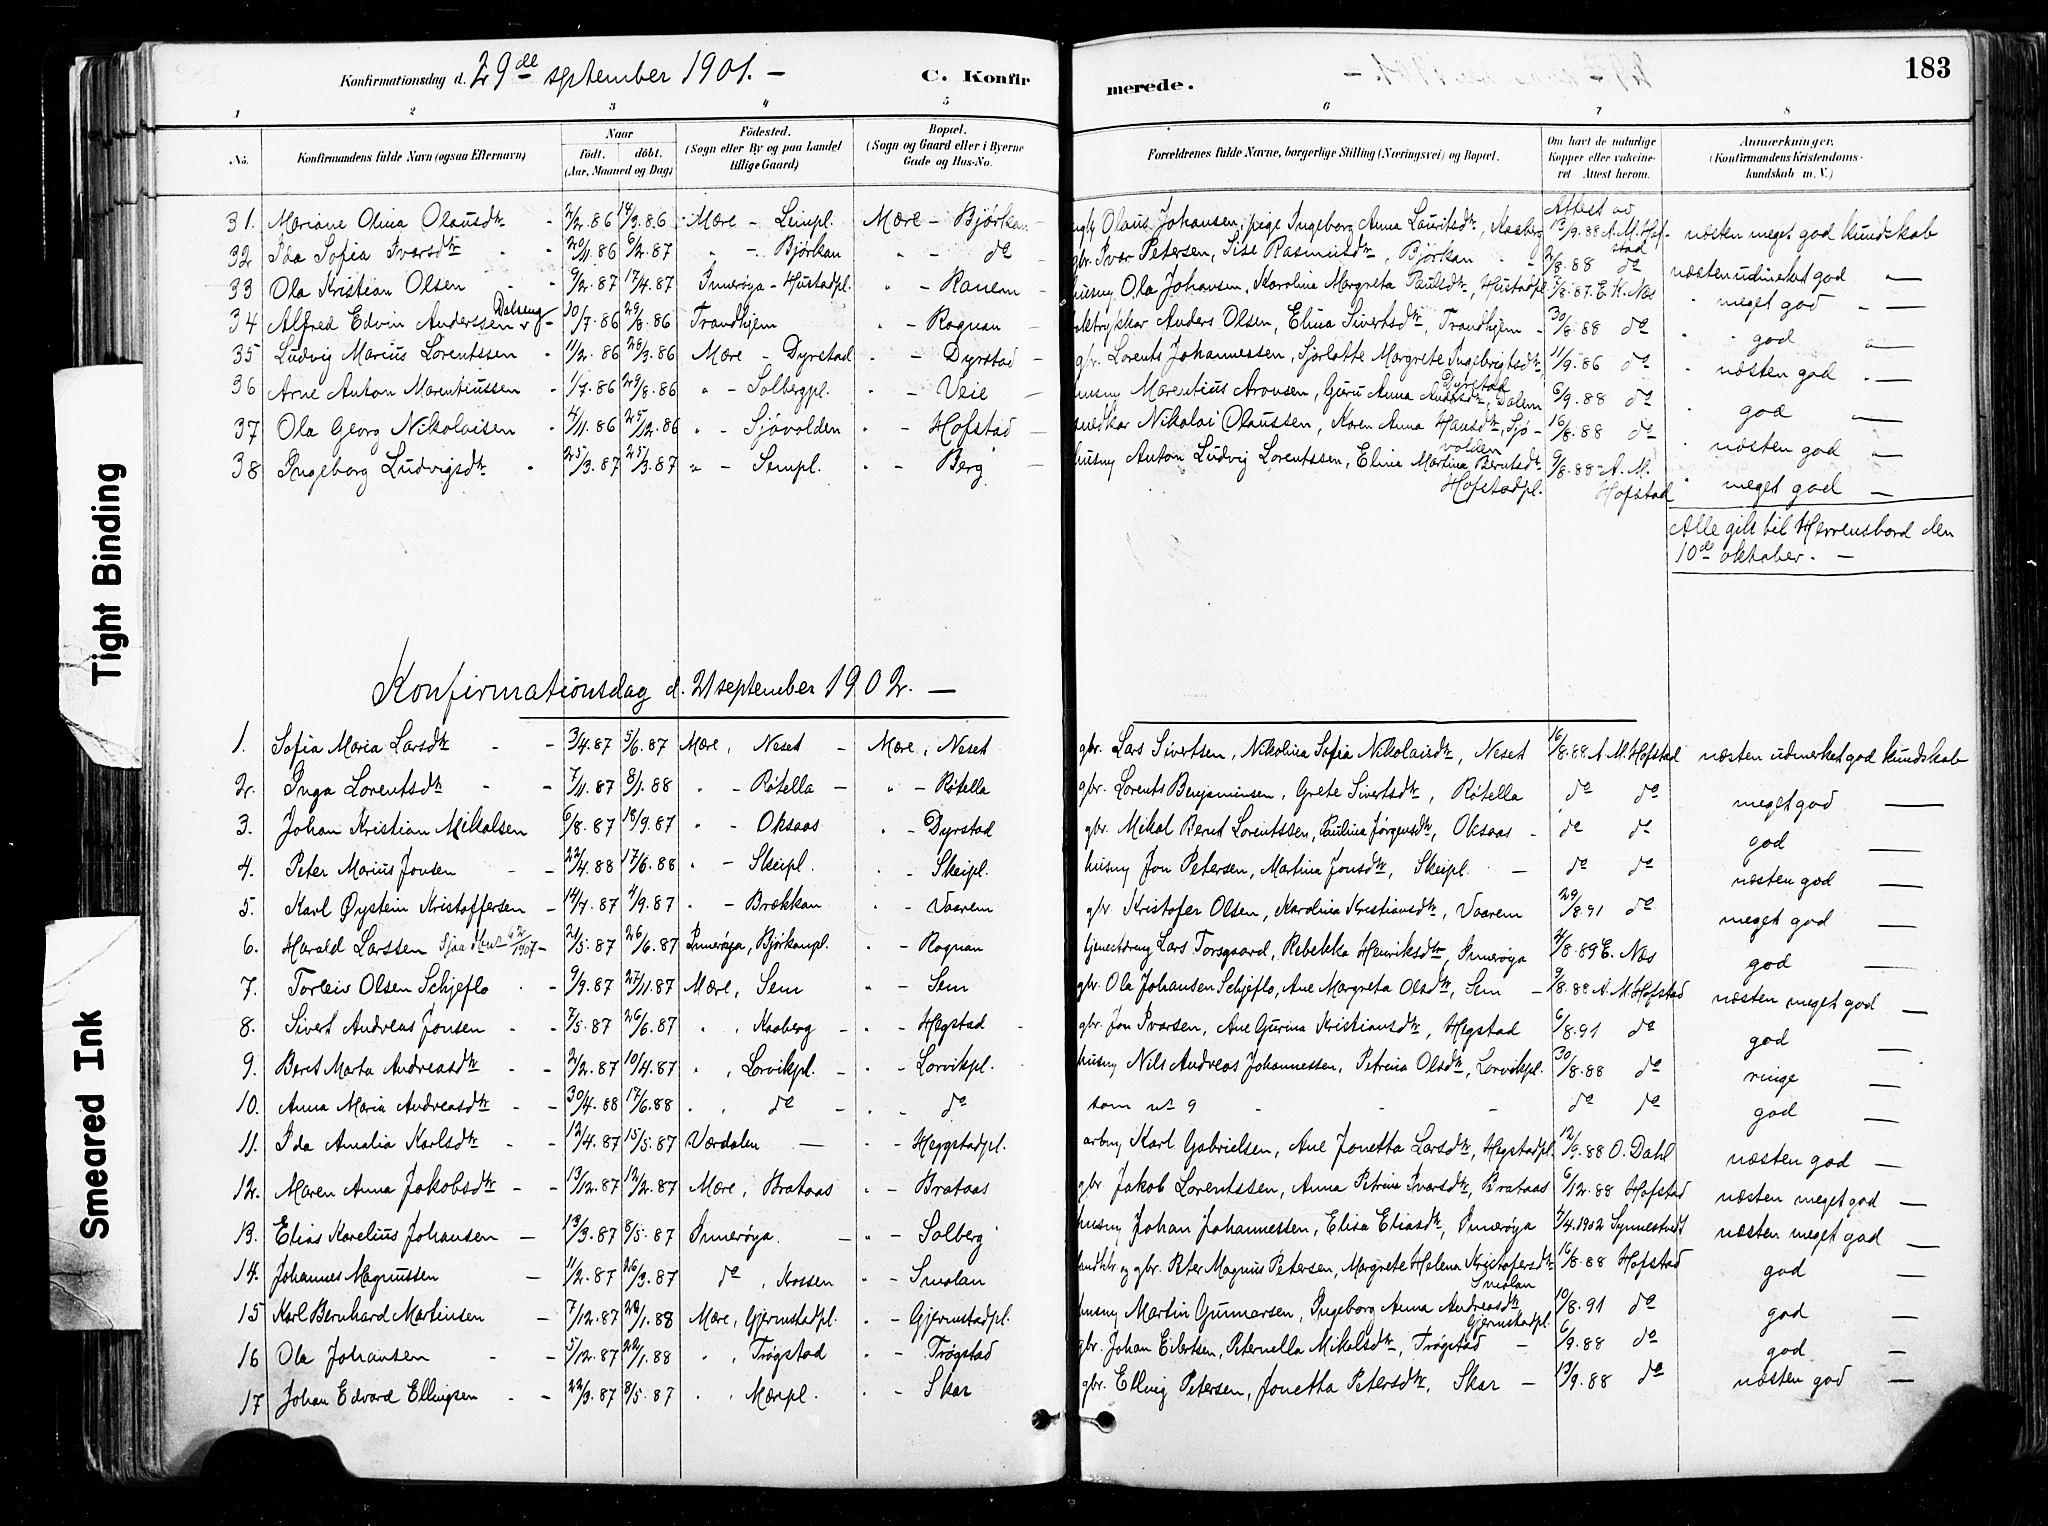 Konfirmationsdag d. 29de september 1901. —
C. Konfirmerede.
183
1 2 3 4 5 6 7 8
No. Konfirmandens fulde Navn (ogsaa Efternavn) Naar Født. döbt. (Aar, Maaned og Dag) Födested. (Sogn eller By og paa Landet tillige Gaard) Bopæl. (Sogn og Gaard eller i Byerne Gade og Hus-No. Forældrenes fulde Navne, borgerlige Stilling (Næringsvei) og Bopæl. Om havt de naturlige Kopper eller vakcineret Attest herom. Anmærkninger. (Konfirmandens Kristendomskundskab m. V.)
Attest av
31. Mariane Olina Olausdtr - 2/2.86 14/3.86 Mære - Leinpl. Mære - Bjørkan - Olaus Johansen, pige Ingeborg Anna Lauritsdtr, Aaberg 13/9.88 A. M. Hofstad næsten meget god kundskab
32. Ida Sofia Ivarsdtr - 20/11.86 6/2.87 " - Bjørkan " - do gbr. Ivar Petersen, Sise Rasmusdtr, Bjørkan - 2/8.88 do næsten udmerket god —
33 Ola Kristian Olsen - 9/2.87 17/4.87 Inderøya - Hustadpl. " - Ranem - husmn Ola Johansen, Karolina Margreta Paulsdtr, Hustadpl 7/8.87. E. K. Næs " meget god —
34 Alfred Edvin Anderssen Dalseng 10/7.86 29/8.86 Trondhjem " - Rognan - Anders Olsen, Elina Sivertsdtr, Trondhjem - 30/8.88 do " god —
35 Ludvig Marius Lorentssen - 11/2.86 28/3.86 Mære - Dyrstad " - Dyrstad - gbr. Lorents Johannessen, Sjarlotte Margrete Ingebrigtsdtr Dyrstad 11/9.86 do " næsten god —
36 Arne Anton Marentiussen - 1/7.86 29/8.86 " - Solbergpl. " - Veie - husmn Marentius Aronsen, Guru Anna Andersdtr, Dalem 6/9.88 do " god —
37 Ola Georg Nikolaisen - 4/11.86 25/12.86 " - Sjøvolden " - Hofstad - snedkar Nikolai Olaussen, Karen Anna Hansdtr, Sjøvolden 16/8.88 do " næsten god —
38 Ingeborg Ludvigsdtr - 25/3.87 25/3.87 " - Sempl. " - Berg - husmn Anton Ludvig Lorentssen, Elina Martina Berntsdtr Hofstadpl. 9/8.88 A. M. Hofstad " meget god —
Alle gik til Herrensbord den
10de oktober. —
Konfirmationsdag d. 21 september 1902. —
1. Sofia Maria Larsdtr - 3/4.87 5/6.87 Mære, Neset - Mære, Neset gbr. Lars Sivertsen, Nikolina Sofia Nikolaisdtr, Neset 16/8.88. A. M. Hofstad næsten udmerket god kundskab
2. Inga Lorentsdtr - 7/11.87 8/1.88 " - Røtella - " - Røtella gbr. Lorents Benjaminsen, Grete Sivertsdtr, Røtella do do meget god —
3. Johan Kristian Mikalsen 6/8.87 18/9.87 " - Oksaas " - Dyrstad gbr. Mikal Bernt Lorentssen, Paulina Jørgensdtr, Oksaas - do do god —
4. Peter Marius Jonsen - 22/4.88 17/6.88 " - Skeipl. " - Skeipl. husmn Jon Petersen, Martina Jonsdtr, Skeipl. - do do næsten god —
5. Karl Øystein Kristoffersen - 14/7.87 4/9.87 " - Brækkan " - Vaarem gbr Kristofer Olsen, Karolina Kristiansdtr, Vaarem 29/8.91 do meget god —
6. Harald Larssen - 21/5.87 26/6.87 Inderøya, Bjørkanpl. " - Rognan tjenestdreng Lars Torsgaard, Rebekka Henriksdtr, Inderøya 4/8.89 E. Næs god —
7. Torleiv Olsen Schjeflo - 9/9.87 27/11.87 Mære, Sem " - Sem gbr. Ola Johansen Schjeflo, Ane Margreta Olsdtr, Sem - 9/8.88 A. M. Hofstad næsten meget god —
8. Sivert Andreas Jonsen - 7/5.87 26/6.87 " , Aaberg - " - Hegstad gbr. Jon Ivarsen, Ane Gurina Kristiansdtr, Hegstad 6/8.91 do god —
9. Beret Marta Andreasdtr - 2/2.87 10/4.87 " , Lorvikpl. - " - Lorvikpl. husmn Nils Andreas Johannessen, Petrina Olsdtr, Lorvikpl. 30/8.88 do ringe —
10. Anna Maria Andreasdtr - 30/4.88 17/6.88 " , do - " - do som no 9 - - - do do god —
11. Ida Amalia Karlsdtr - 12/4.87 15/5.87 Værdalen — " - Heggstadpl. arbmn Karl Gabrielsen, Ane Jonetta Larsdtr, Hegstadpl 12/9.88 O. Dahl næsten god —
12. Maren Anna Jakobsdtr - 13/12.87 12/2.87 Mære, Brataas " - Brataas gbr Jakob Lorentssen, Anna Petrina Ivarsdtr, Brataas 6/12.88 Hofstad næsten meget god —
13. Elias Karelius Johansen - 13/3.87 8/5.87 Inderøya. - " - Solberg husmn Johan Johannessen, Elisa Eliasdtr, Inderøya 2/4.1902 Synnestvedt næsten meget god —
14. Johannes Magnussen - 11/2.87 26/3.87 do , Kossen " - Smolan og gbr. Peter Magnus Petersen, Margrete Helena Kristofersdtr Smolan 16/8.88 Hofstad god —
15 Karl Bernhard Martinsen - 7/12.87 28/1.88 Mære, Gjermstadpl. " - Gjermstadpl. husmn Martin Gunnarsen, Ingeborg Anna Andreasdtr Gjermstadpl. 10/8.91 do god —
16 Ola Johansen - 5/12.87 22/1.88 " , Trøgstad " - Trøgstad gbr. Johan Eilertsen, Peternella Mikalsdtr, Trøgstad - 6/9.88 do god —
17 Johan Edvard Ellingsen - 22/3.87 8/5.87 " , Mærpl. " - Skar gbr. Elling Petersen, Jonetta Petersdtr, Skar - 13/9.88 do næsten god —
Tight Binding
Smeared Ink